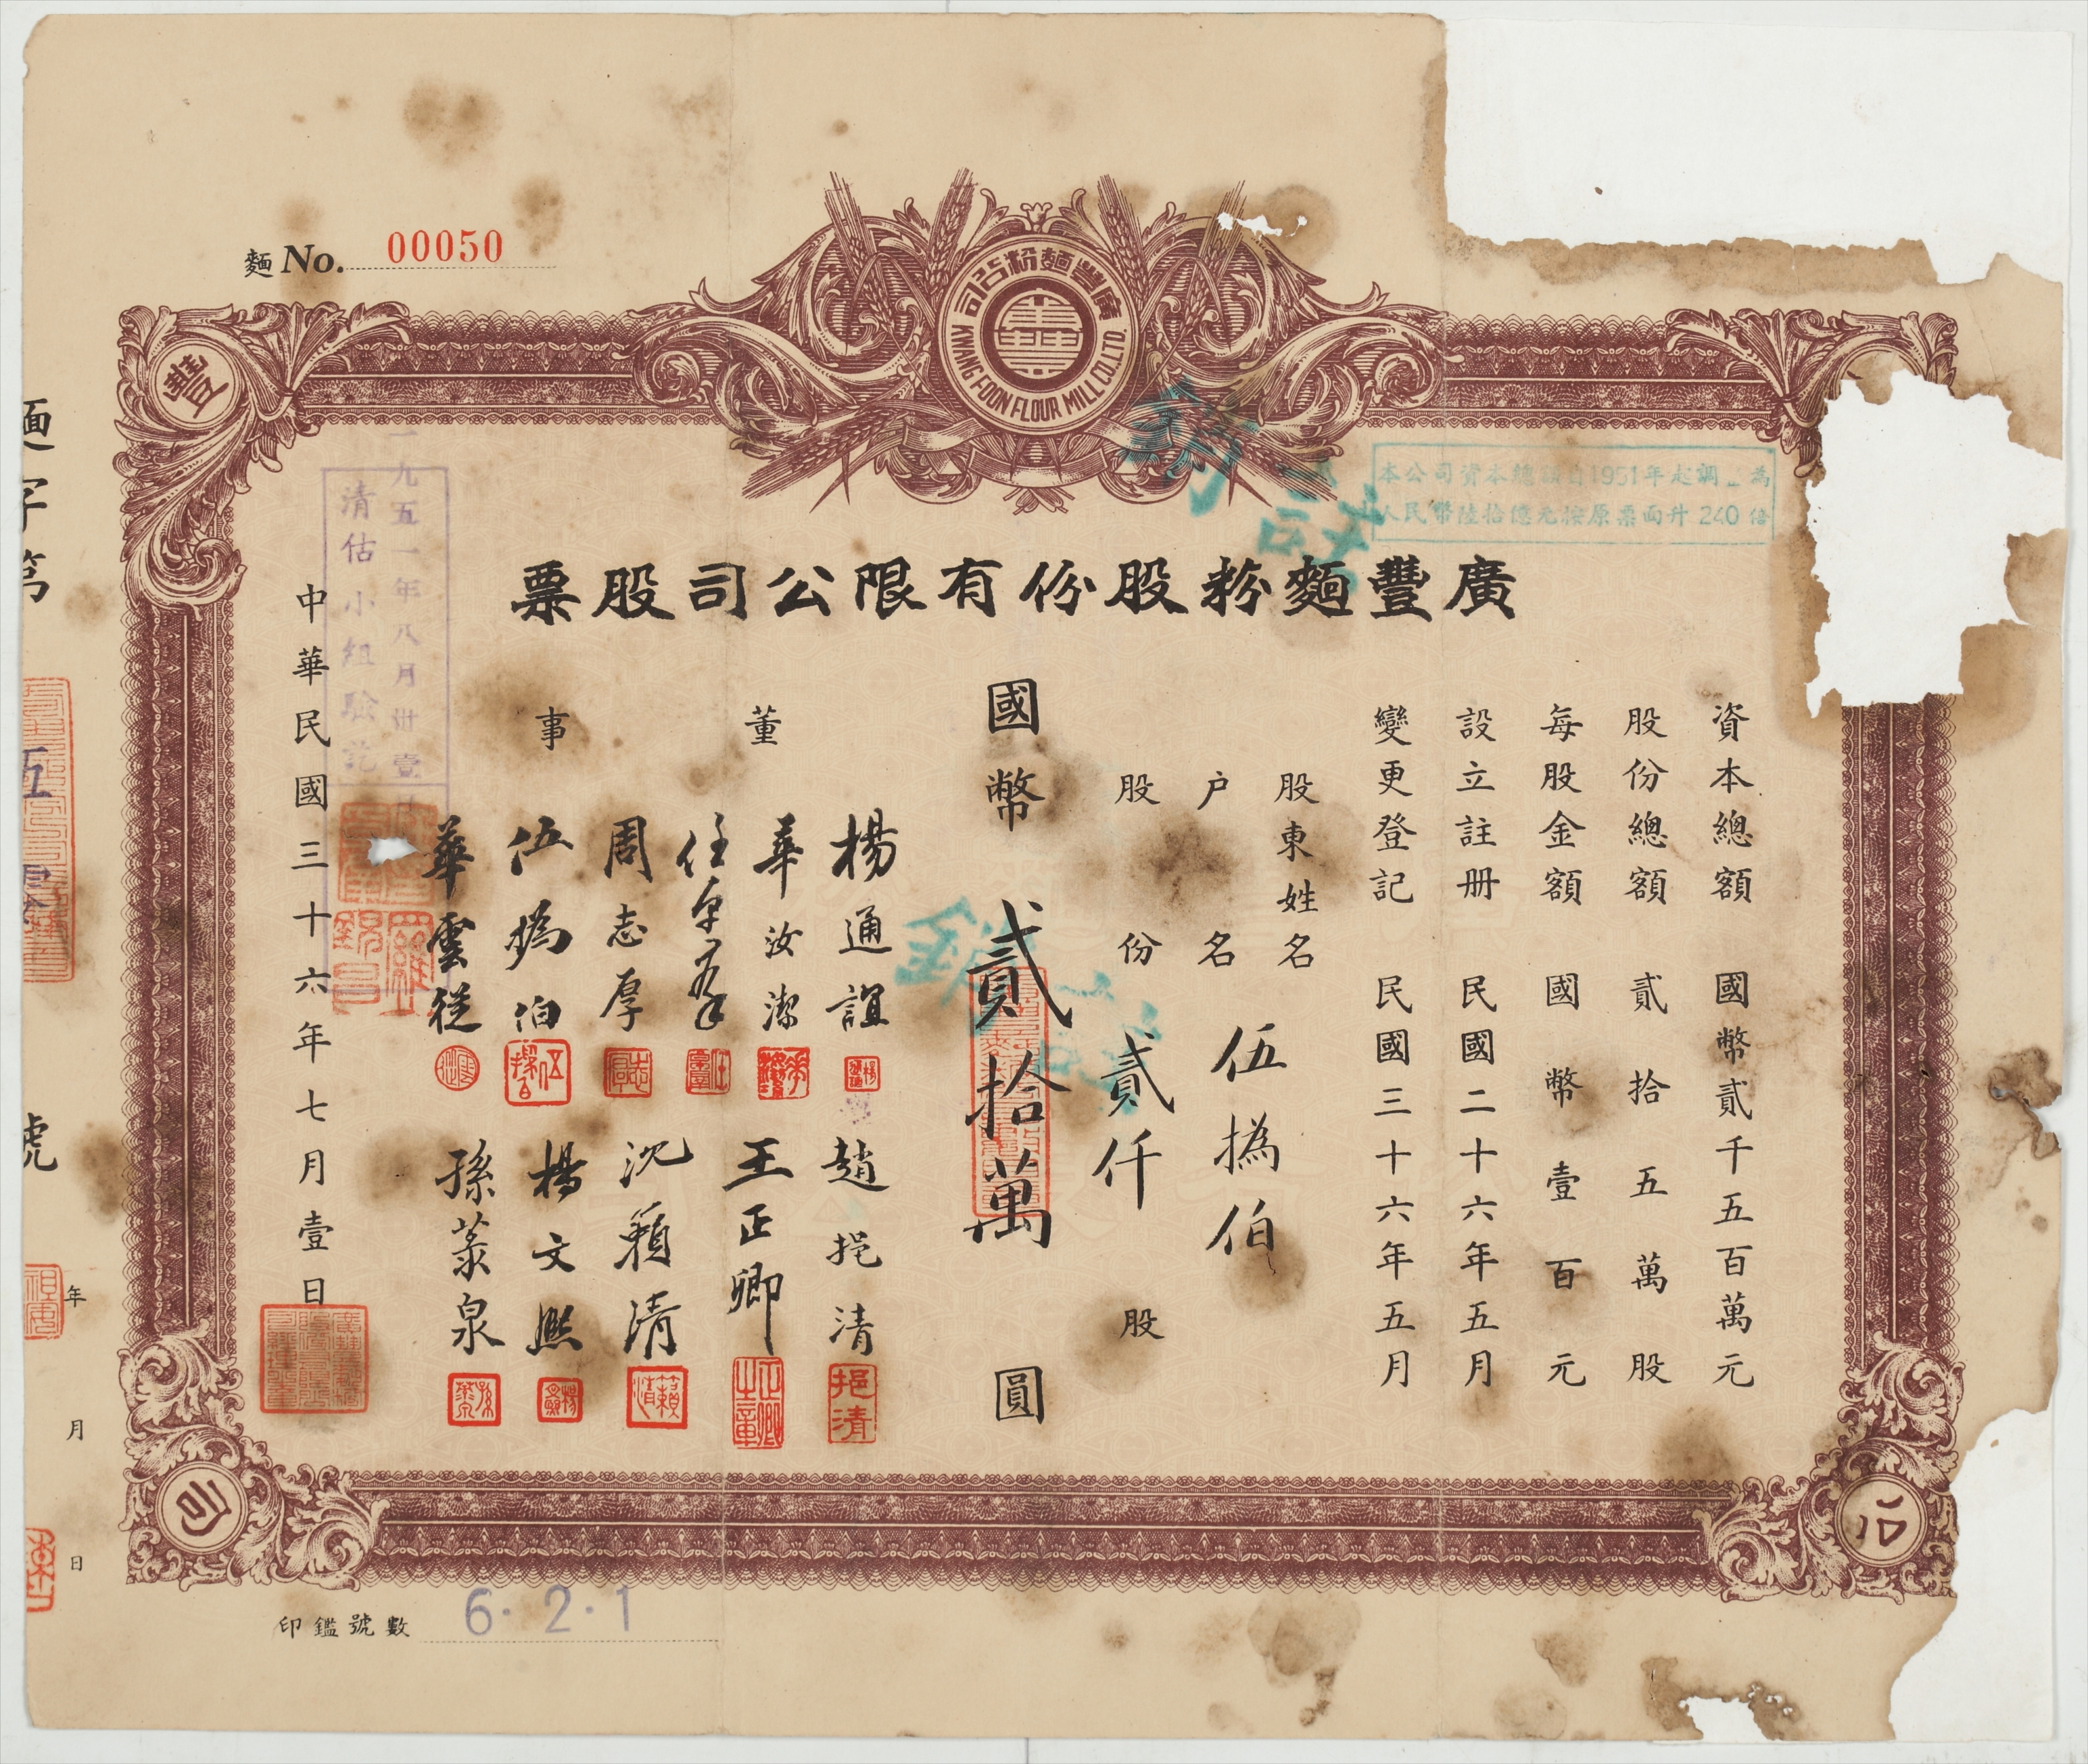 麵 No. 00050
廣豐麵粉公司
KWANG FOON FLOUR MILL CO. LTD.
豐
本公司資本總額自1951年起調 為
人民幣陸拾億元按原票面升240倍
註銷
廣豐麵粉股份有限公司股票
資本總額 國幣貳千五百萬元
股份總額 貳拾五萬股
每股金額 國幣壹百元
設立註册 民國二十六年五月
變更登記 民國三十六年五月
股東姓名
户名 伍撝伯
股份 貳仟股
國幣 貳拾萬 圓
董事
楊通誼
華汝潔
周志厚
伍撝伯
華雲從
趙挹清
王正卿
沈賴清
楊文熙
孫蒸泉
挹清
正卿之章
中華民國三十六年七月壹日
一九五一年八月卅壹日
清估小組驗訖
麵字第 五 號
年 月 日
司
公
印鑑號數 6·2·1